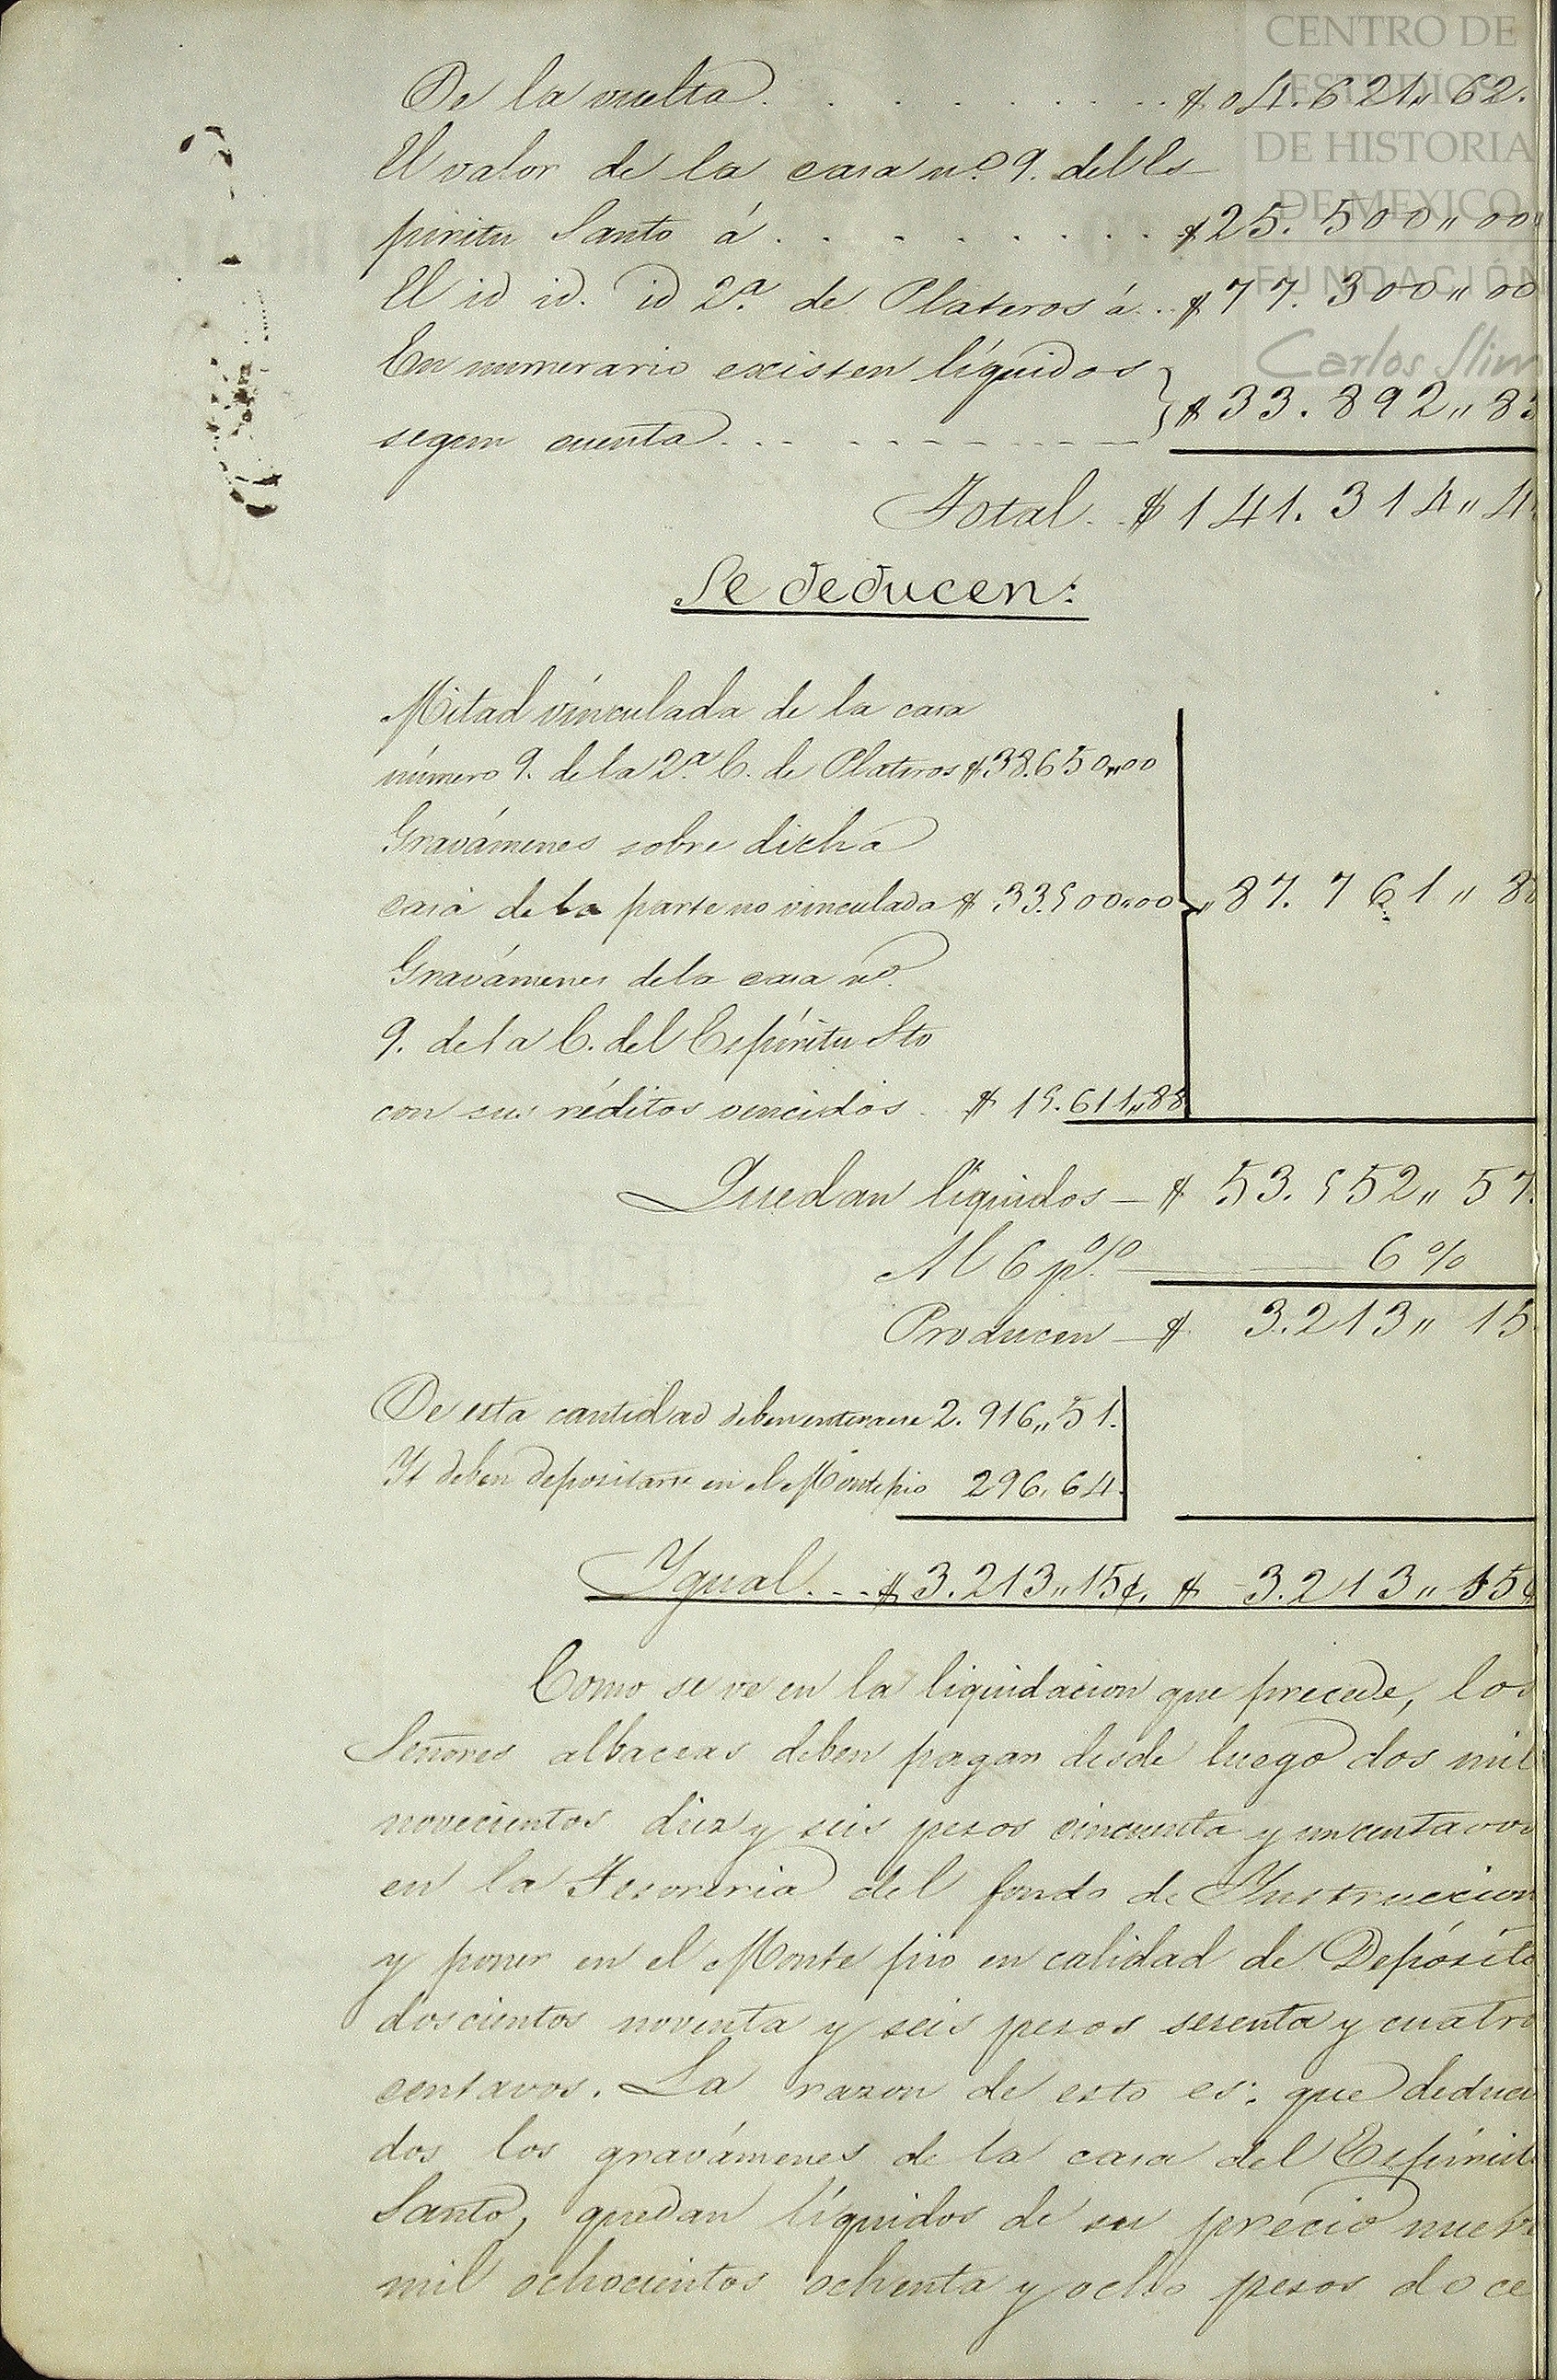 CENTRO DE
ESTUDIOS
DE HISTORIA
DE MEXICO
FUNDACIÓN
Carlos Slim
De la vuelta . . . . . . . . $ 04.621,, 62.
El valor de la casa n.o 9. del Es-
piritu Santo á . . . . . . . . $25.500,,00
El id id. id 2.a de Plateros á . . $77.300,,00
En numerario existen líquidos
segun cuenta . . . $33.892,,83
Total. $141.314,,4
Se deducen:
Mitad vinculada de la casa
número 9. de la 2.a C. de Plateros $38.650,,00
Gravámenes sobre dicha
casa de la parte no vinculada $ 33.500,,00 ,, 87.761,,88
Gravámenes de la casa n.o
9. de la C. del Espíritu Sto
con sus réditos vencidos $ 15.611,,88
Quedan líquidos — $ 53.552,,57.
Al 6 p.% 6 %
Producen — $ 3.213,,15
De esta cantidad deben enterarse 2.916,,51.
Y deben depositarse en el Montepio 296,64.
Ygual. . . $3.213,,15¢. $ 3.213,,15¢
Como se ve en la liquidacion que precede, los
Señores albaceas deben pagar desde luego dos mil
novecientos diez y seis pesos cincuenta y un centavos
en la Tesoreria del fondo de Ynstruccion
y poner en el Monte pio en calidad de Depósito
doscientos noventa y seis pesos sesenta y cuatro
centavos. La razon de esto es: que deduci
dos los gravámenes de la casa del Espíritu
Santo, quedan líquidos de su precio nueve
mil ochocientos ochenta y ocho pesos doce